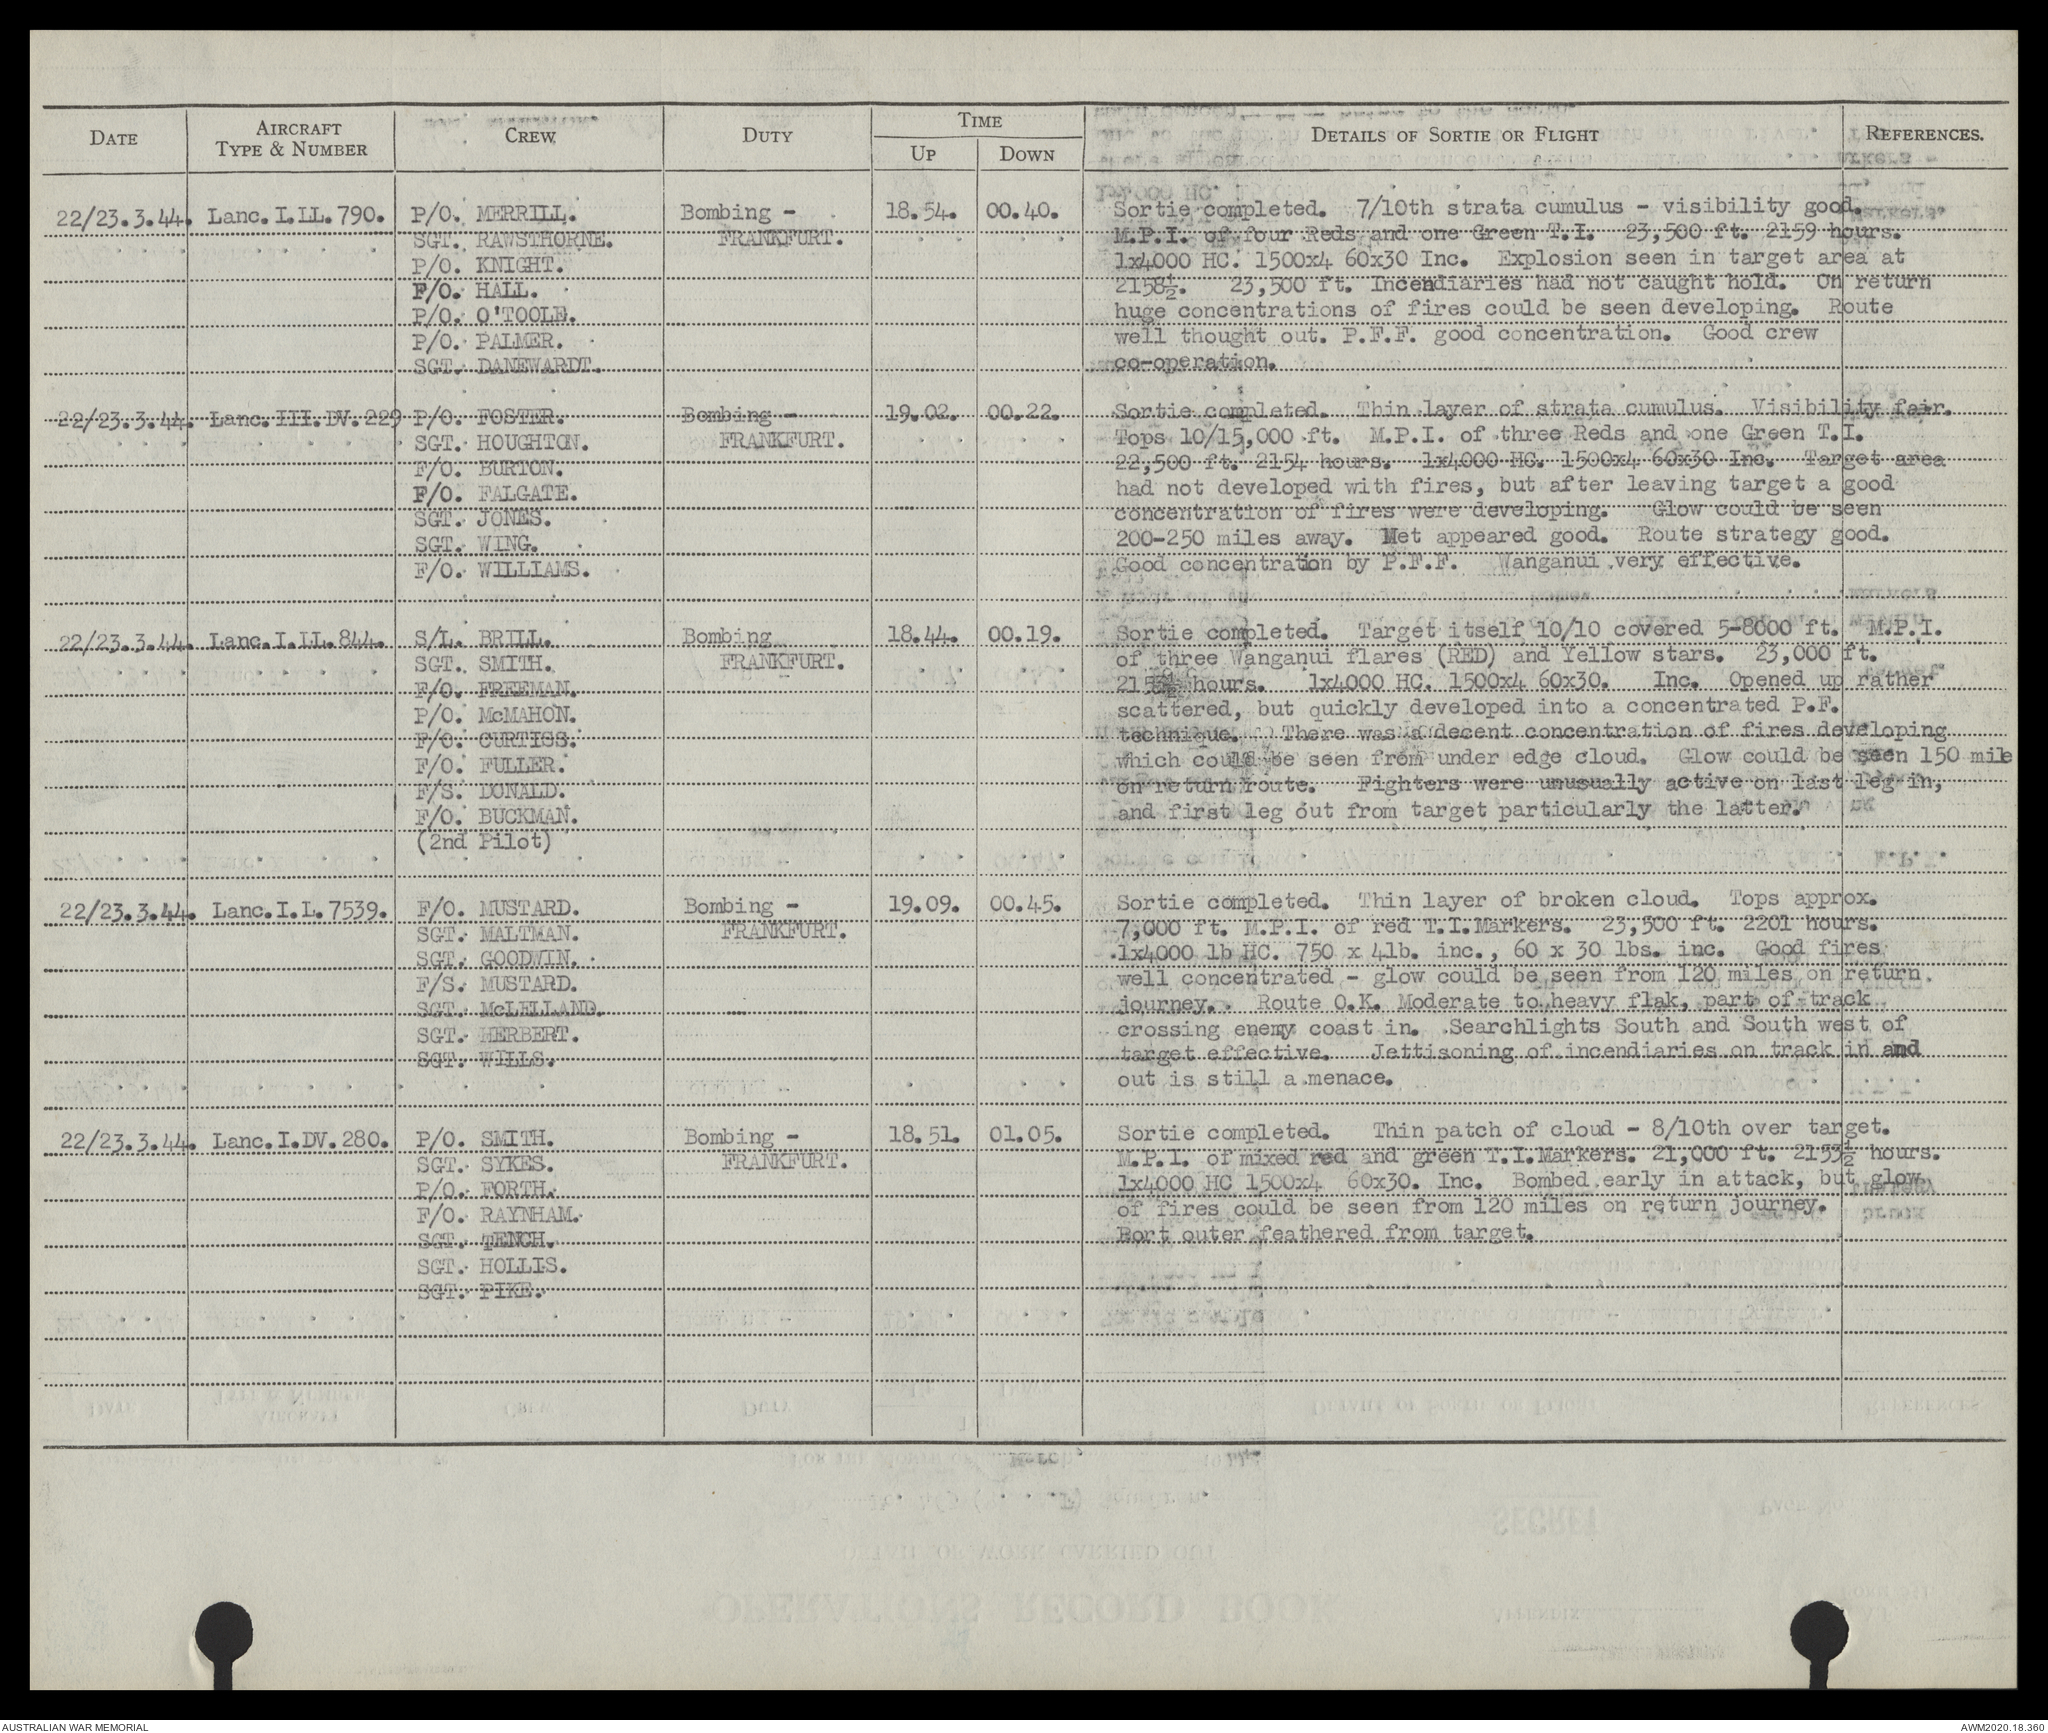 DATE AIRCRAFT TYPE & NUMBER CREW DUTY TIME UP DOWN DETAILS OF SORTIE OR FLIGHT REFERENCES.
22/23.3.44. Lanc.I.LL.790. P/O. MERRILL. Bombing - 18.54. 00.40. Sortie completed. 7/10th strata cumulus - visibility good.
SGT. RAWSTHORNE. FRANKFURT. M.P.I. of four Reds and one Green T.I. 23,500 ft. 2159 hours.
P/O. KNIGHT. 1x4000 HC. 1500x4 60x30 Inc. Explosion seen in target area at
F/O. HALL. 2158½. 23,500 ft. Incendiaries had not caught hold. On return
P/O. O'TOOLE. huge concentrations of fires could be seen developing. Route
P/O. PALMER. well thought out. P.F.F. good concentration. Good crew
SGT. DANEWARDT. co-operation.
22/23.3.44. Lanc.III.DV.229 P/O. FOSTER. Bombing - 19.02. 00.22. Sortie completed. Thin layer of strata cumulus. Visibility fair.
SGT. HOUGHTON. FRANKFURT. Tops 10/15,000 ft. M.P.I. of three Reds and one Green T.I.
F/O. BURTON. 22,500 ft. 2154 hours. 1x4000 HC. 1500x4 60x30 Inc. Target area
F/O. FALGATE. had not developed with fires, but after leaving target a good
SGT. JONES. concentration of fires were developing. Glow could be seen
SGT. WING. 200-250 miles away. Met appeared good. Route strategy good.
F/O. WILLIAMS. Good concentration by P.F.F. Wanganui very effective.
22/23.3.44. Lanc.I.LL.844. S/L. BRILL. Bombing 18.44. 00.19. Sortie completed. Target itself 10/10 covered 5-8000 ft. M.P.I.
SGT. SMITH. FRANKFURT. of three Wanganui flares (RED) and Yellow stars. 23,000 ft.
F/O. FREEMAN. hours. 1x4000 HC. 1500x4 60x30. Inc. Opened up rather
P/O. McMAHON. scattered, but quickly developed into a concentrated P.F.
F/O. CURTISS. technique. There was a decent concentration of fires developing
F/O. FULLER. which could be seen from under edge cloud. Glow could be seen 150 mile
F/S. DONALD. on return route. Fighters were unusually active on last leg in,
F/O. BUCKMAN. and first leg out from target particularly the latter.
(2nd Pilot)
22/23.3.44. Lanc.I.L.7539. F/O. MUSTARD. Bombing - 19.09. 00.45. Sortie completed. Thin layer of broken cloud. Tops approx.
SGT. MALTMAN. FRANKFURT. 7,000 ft. M.P.I. of red T.I.Markers. 23,500 ft. 2201 hours.
SGT. GOODWIN. 1x4000 lb HC. 750 x 4lb. inc., 60 x 30 lbs. inc. Good fires
F/S. MUSTARD. well concentrated - glow could be seen from 120 miles on return
SGT. McLELLAND. journey. Route O.K. Moderate to heavy flak, part of track
SGT. HERBERT. crossing enemy coast in. Searchlights South and South west of
SGT. WILLS. target effective. Jettisoning of incendiaries on track in and
out is still a menace.
22/23.3.44. Lanc.I.DV.280. P/O. SMITH. Bombing - 18.51. 01.05. Sortie completed. Thin patch of cloud - 8/10th over target.
SGT. SYKES. FRANKFURT. M.P.I. of mixed red and green T.I.Markers. 21,000 ft. 2153½ hours.
P/O. FORTH. 1x4000 HC 1500x4 60x30. Inc. Bombed early in attack, but glow
F/O. RAYNHAM. of fires could be seen from 120 miles on return journey.
SGT. TENCH. Port outer feathered from target.
SGT. HOLLIS.
SGT. PIKE.
AUSTRALIAN WAR MEMORIAL AWM2020.18.360